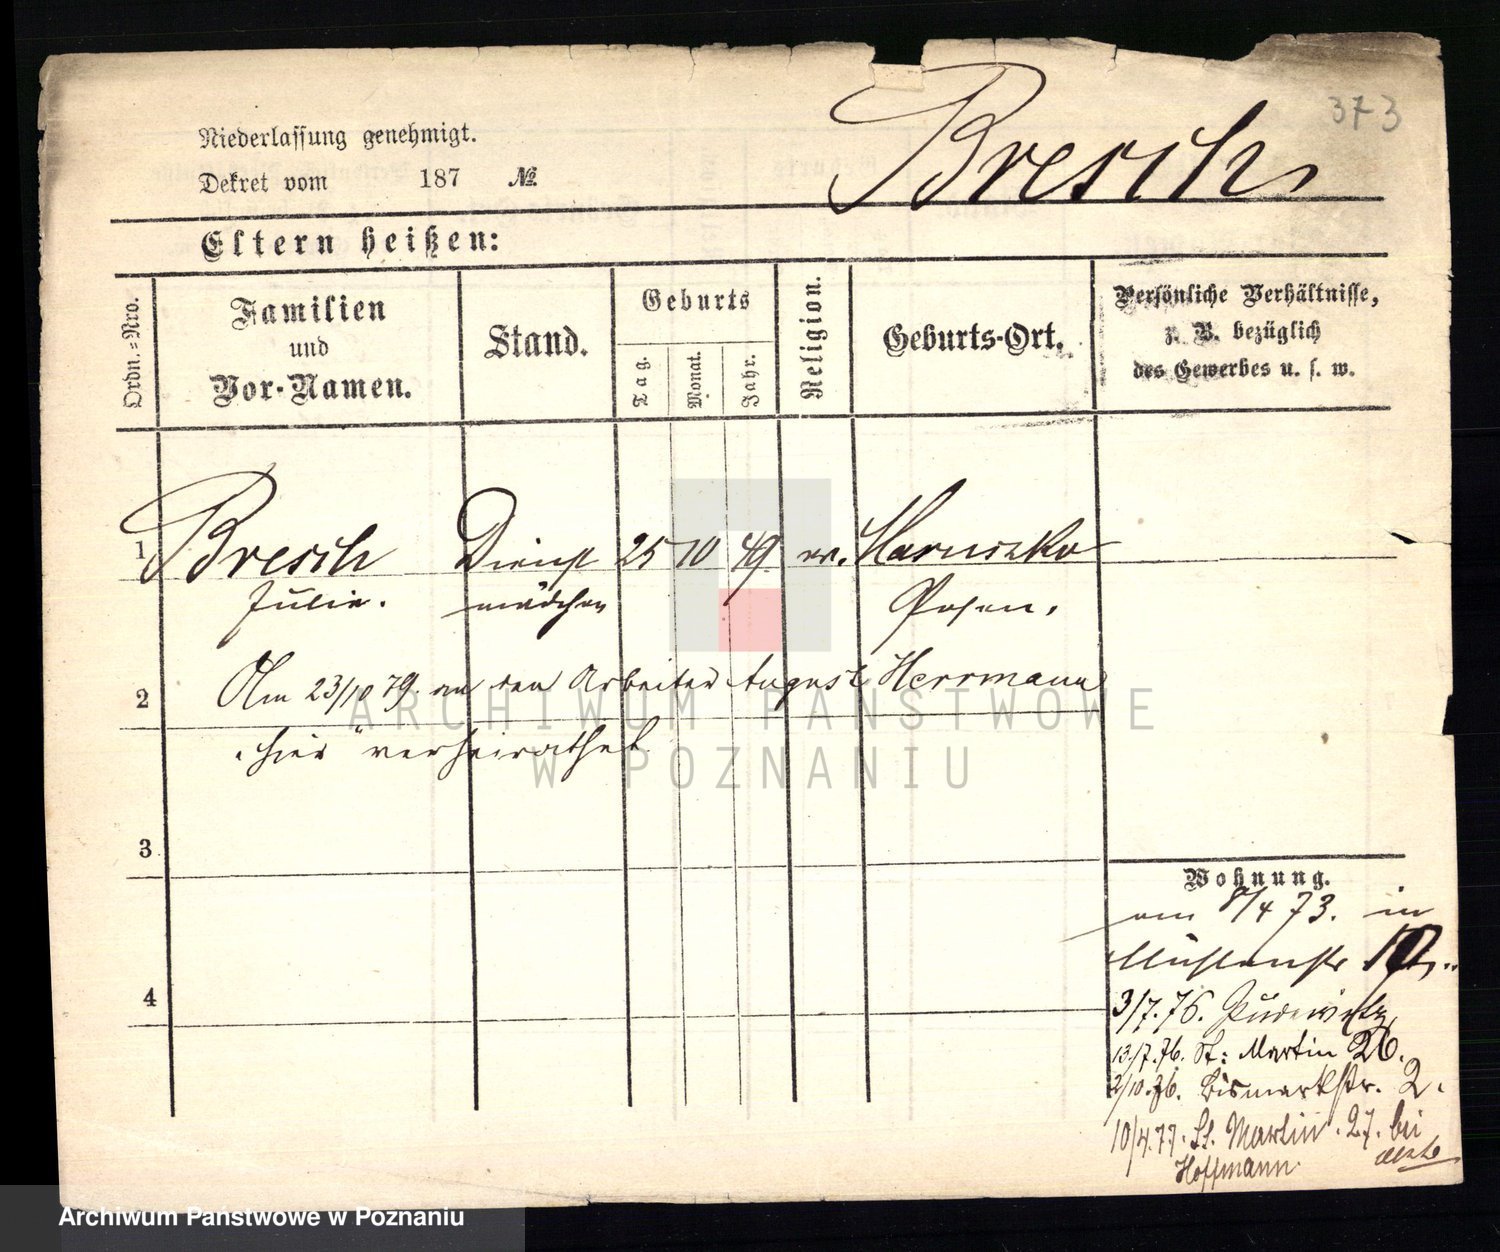 373
Bresch
Niederlassung genehmigt.
Dekret vom 187 №
Eltern heißen:
Ordn.-Nro.
Familien
und
Vor-Namen.
Stand.
Geburts
Tag.
Monat.
Jahr.
Religion.
Geburts-Ort.
Persönliche Verhältnisse,
z. B. bezüglich
des Gewerbes u. s. w.
1 Bresch Dienst 25 10 49. ev.
Julie. mädchen Posen.
2 Am 23/10 79. an den Arbeiter August Herrmann
hier verheirathet
3
4
Wohnung.
am 8/4 73. in
Mühlenstr
3/7. 76. Pudewitz
13/7. 76. St: Martin 26.
2/10. 76. Bismarkstr. 2.
10/4. 77. St. Martin. 27. bei
Hoffmann.
ARCHIWUM PAŃSTWOWE
W POZNANIU
Archiwum Państwowe w Poznaniu